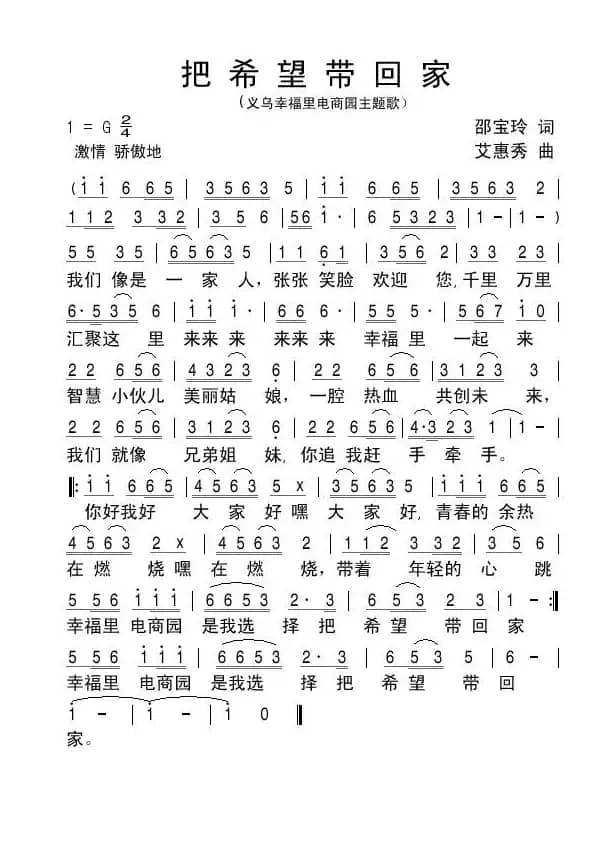 把希望带回家
（义乌幸福里电商园主题歌）
1 = G 2/4
邵宝玲 词
激情 骄傲地
艾惠秀 曲
( i i 6 6 5 | 3 5 6 3 5 | i i 6 6 5 | 3 5 6 3 2 |
1 1 2 3 3 2 | 3 5 6 | 5 6 1 · 6 | 5 3 2 3 | 1 - | 1 - )
5 5 3 5 | 6 5 6 3 5 | 1 1 6 1 | 3 5 6 2 | 3 3 2 3 |
我们 像是 一 家 人，张张 笑脸 欢迎 您,千里 万里
6 · 5 3 5 6 | i i i · | 6 6 6 · | 5 5 5 · | 5 6 7 i 0 |
汇聚这 里 来来 来 来来 来 幸福 里 一起 来
2 2 6 5 6 | 4 3 2 3 6 | 2 2 6 5 6 | 3 1 2 3 3 |
智慧 小伙儿 美丽姑 娘，一腔 热血 共创未 来，
2 2 6 5 6 | 3 1 2 3 6 | 2 2 6 5 6 | 4 · 3 2 3 | 1 - |
我们 就像 兄弟姐 妹, 你追 我赶 手 牵 手。
‖: i i 6 5 6 | 4 5 6 3 5 x | 4 5 6 3 5 | i i 6 5 6 |
你好我好 大 家 好嘿 大 家 好, 青春的 余热
4 5 6 3 2 x | 4 5 6 3 2 | 1 1 2 3 3 2 | 3 5 6 |
在 燃 烧嘿 在 燃 烧,带着 年轻的 心 跳
5 5 6 i i i | 6 6 5 3 2 · 3 | 5 6 5 2 3 | 1 - :‖
幸福里 电商园 是我选 择 把 希 望 带 回 家
5 5 6 i i i | 6 6 5 3 2 · 3 | 5 6 5 3 | 2 i |
幸福里 电商园 是我选 择 把 希 望 带 回
1 - | 1 - | 1 0 ‖
家。